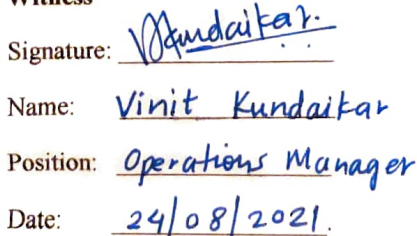 Witness
Signature: VKundaikar.
Name: Vinit Kundaikar
Position: Operations Manager
Date: 24/08/2021.